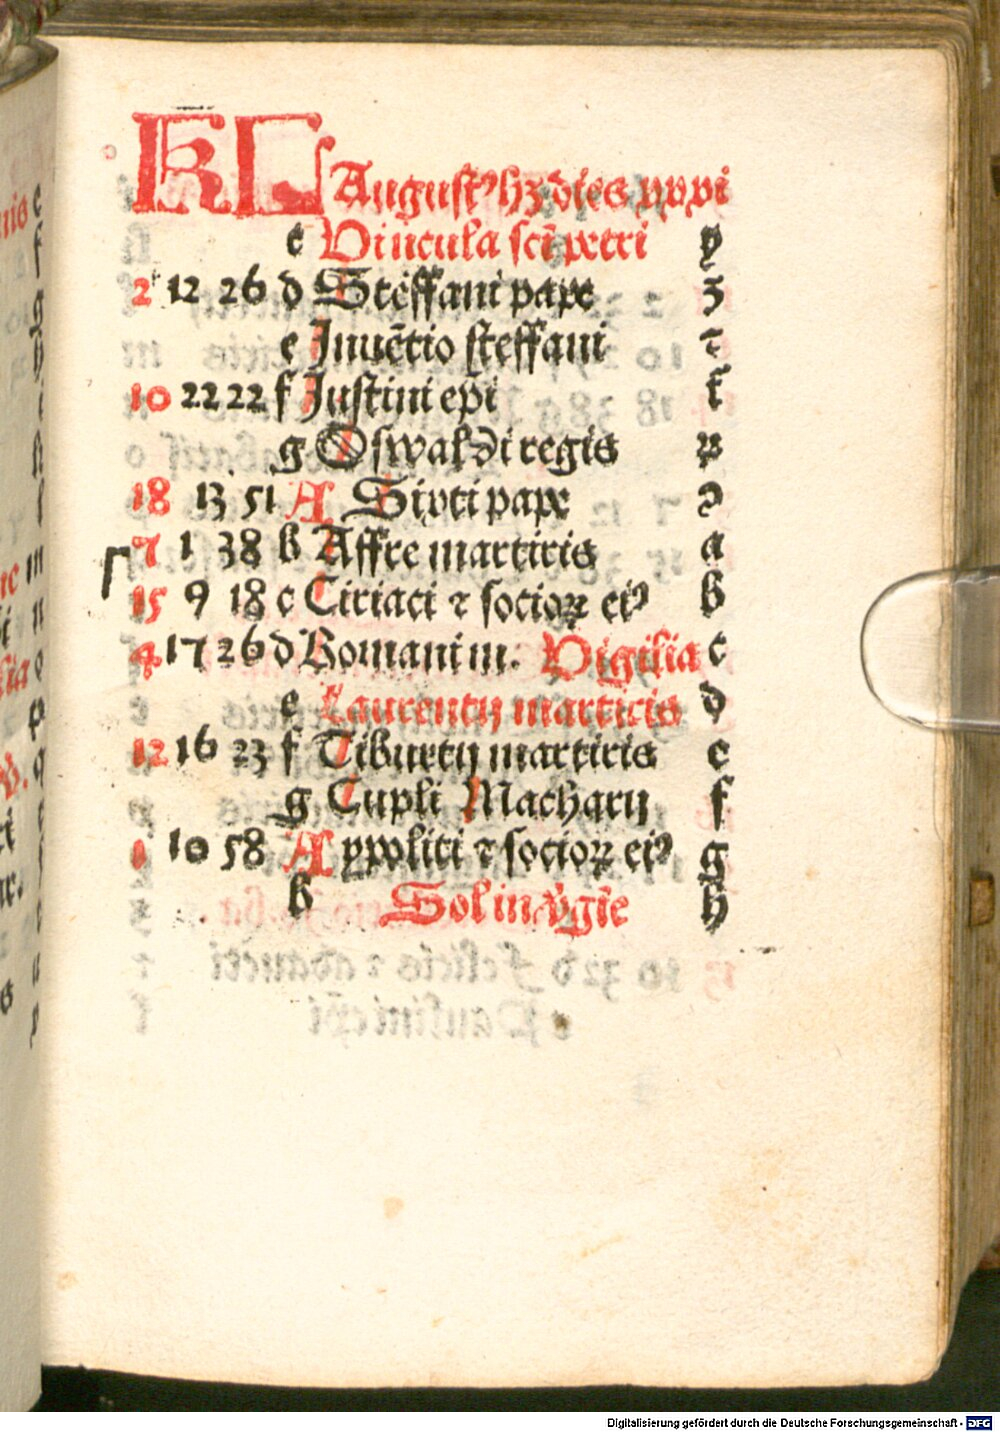 KL August⁹ hꝫ dies xxxi
c Vincula scī petri y
2 12 26 d Steffani pape ʒ
e Inuētio steffani ⁊
10 22 22 f Justini ep̄i
g Oswaldi regis
18 13 51 A Sixti pape
7 1 38 b Affre martiris a
15 9 18 c Ciriaci ⁊ socioꝝ ei⁹ b
4 17 26 d Romani m. Vigilia c
e Laurentij martiris d
12 16 23 f Tiburtij martiris e
g Eupli Macharij f
1 10 58 A ypoliti ⁊ socioꝝ ei⁹ g
b Sol in v̓gīe h
Digitalisierung gefördert durch die Deutsche Forschungsgemeinschaft - DFG